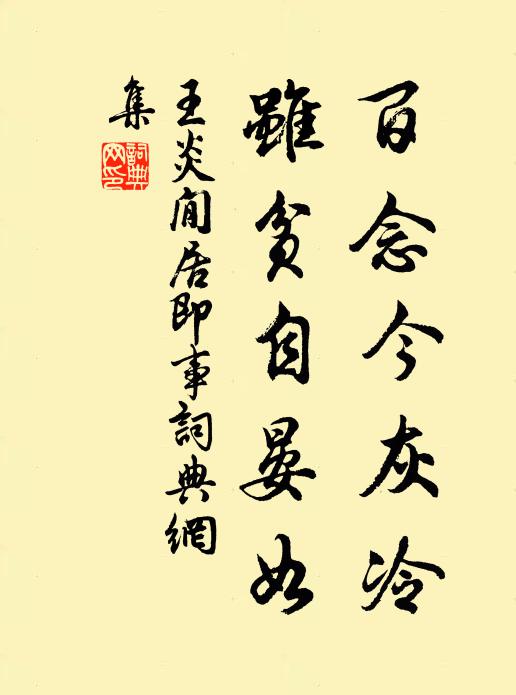 百念今灰冷
雖貧自晏如
王炎閒居即事詞典網
集
詞典
網印